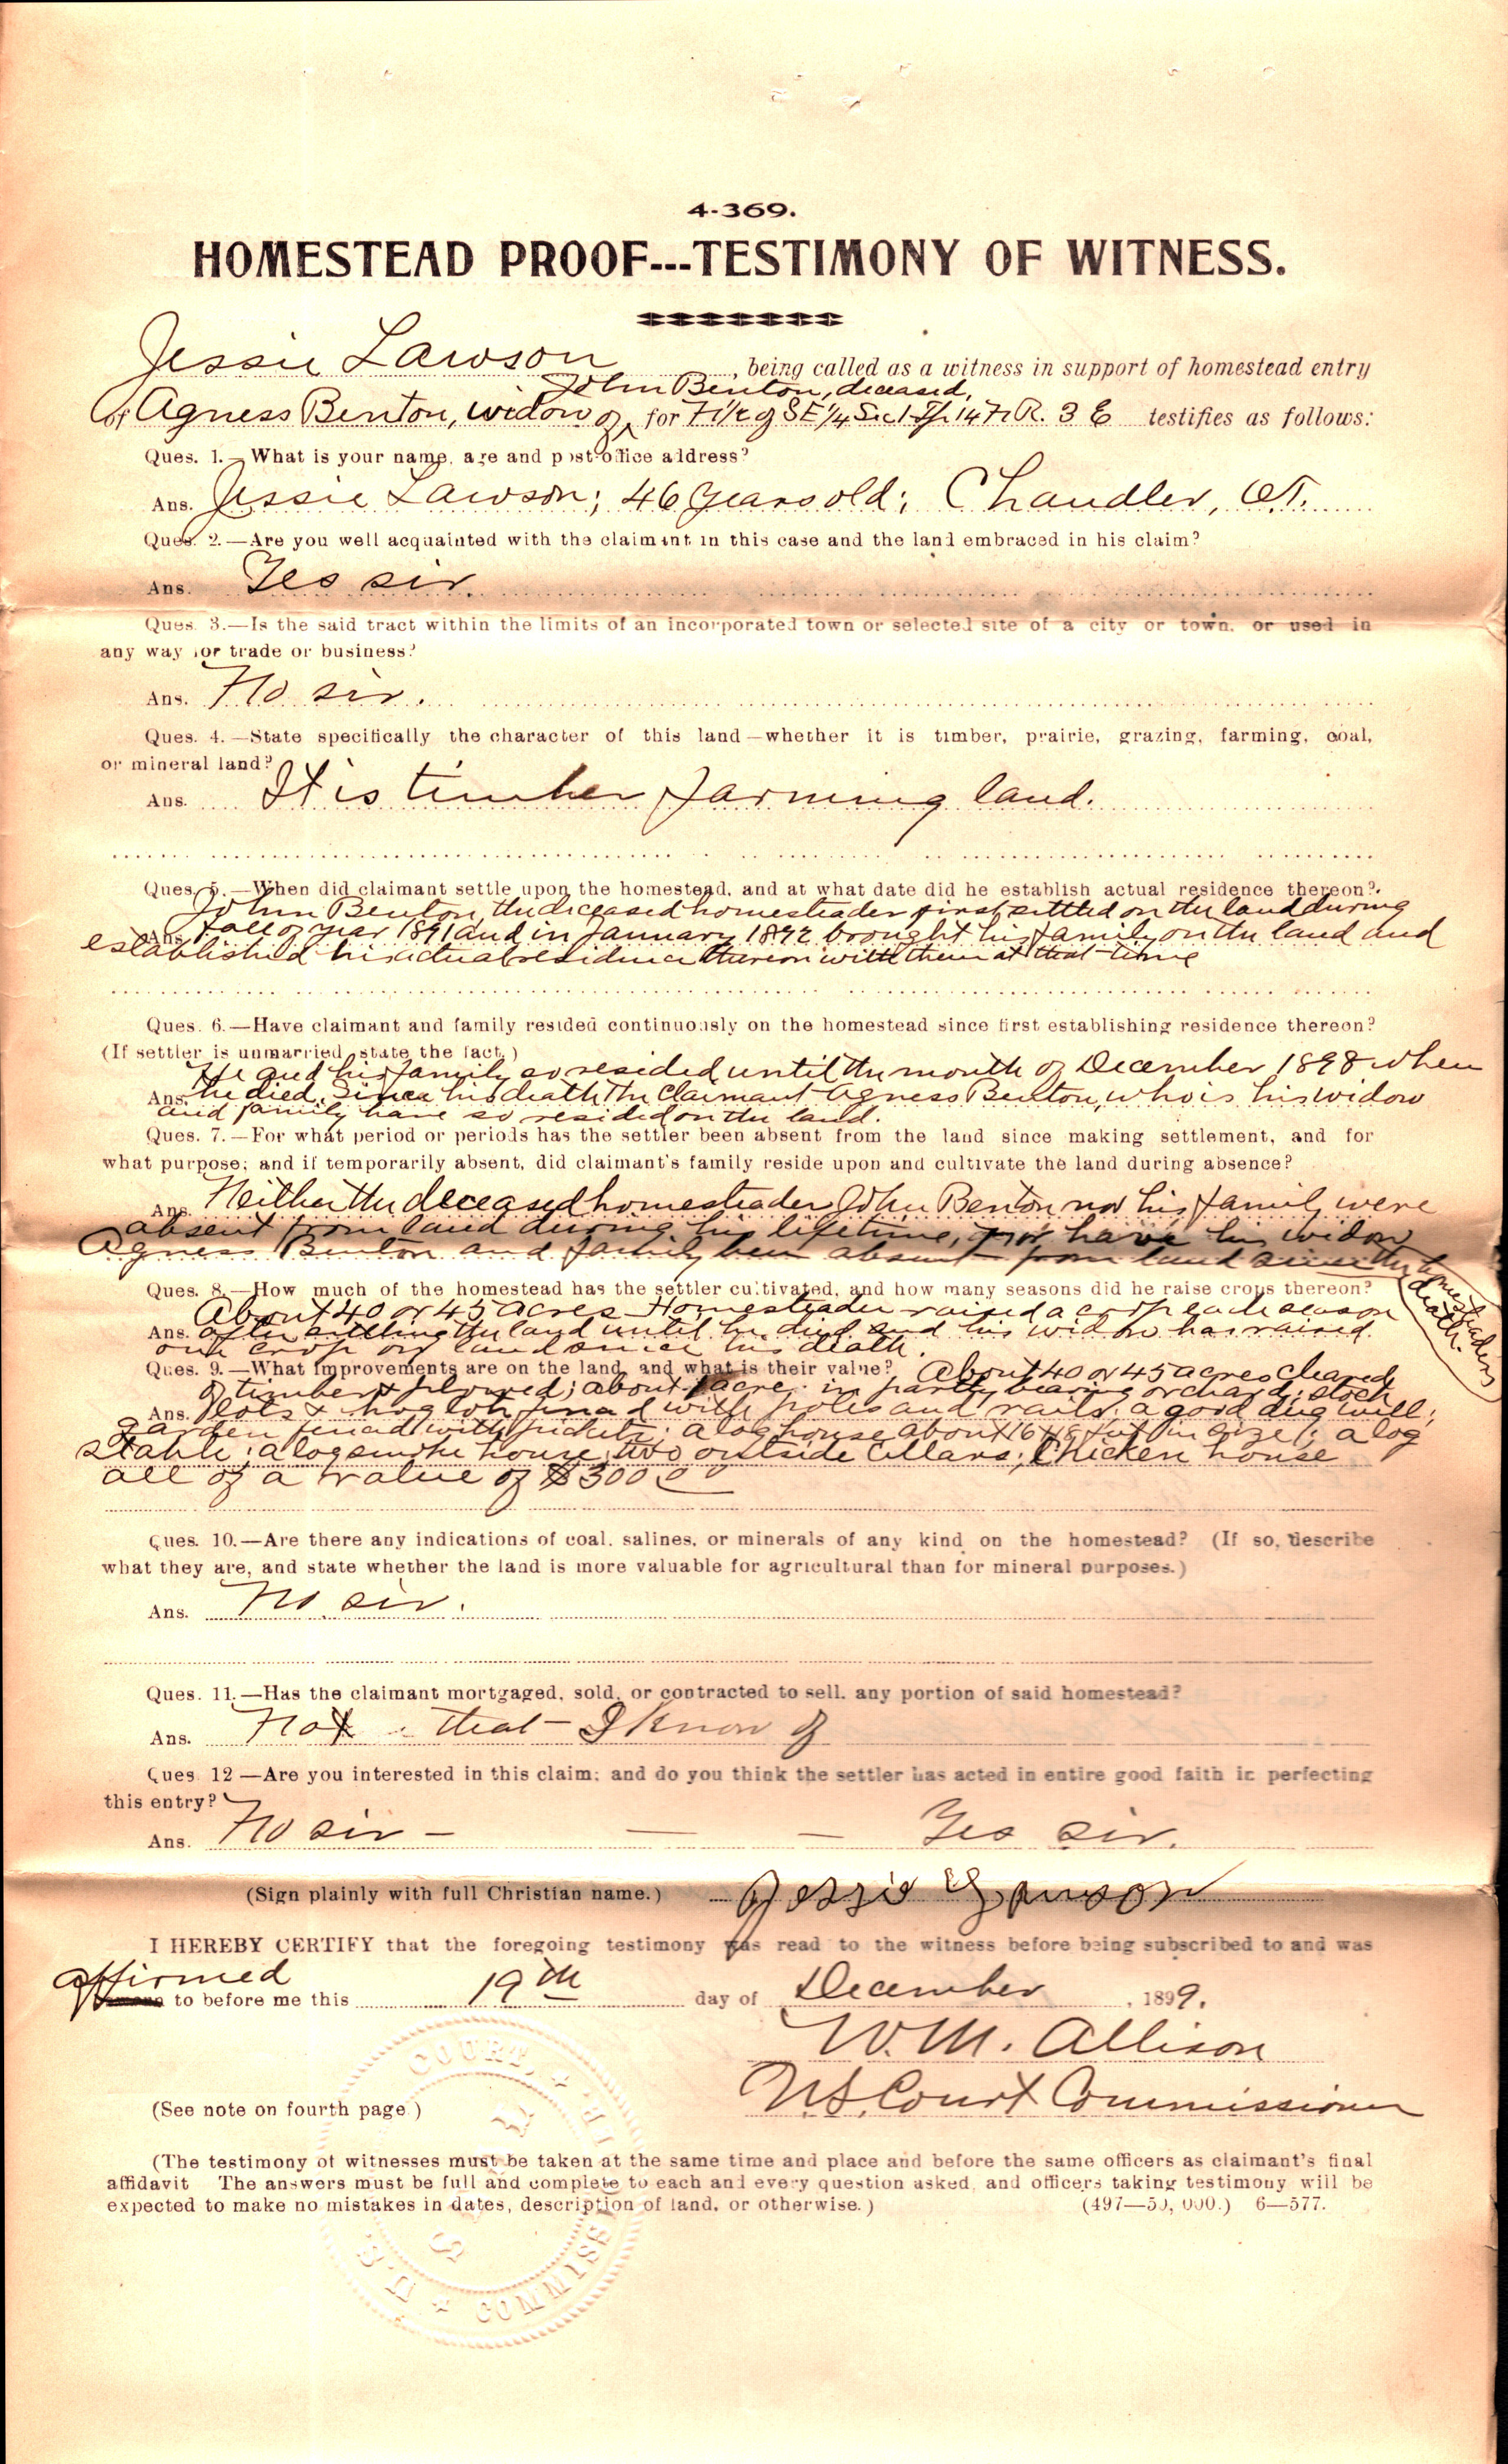 4-369.
HOMESTEAD PROOF---TESTIMONY OF WITNESS.
Jessie Lawson, being called as a witness in support of homestead entry
John Benton, deceased,
of Agness Benton, widow of ‸ for N 1/2 of SE 1/4 Sec 1 Tp 14 N R. 3 E testifies as follows:
Ques. 1.—What is your name, age and post-office address?
Ans. Jessie Lawson; 46 years old; Chandler, O.T.
Ques. 2.—Are you well acquainted with the claimant in this case and the land embraced in his claim?
Ans. Yes sir.
Ques. 3.—Is the said tract within the limits of an incorporated town or selected site of a city or town, or used in
any way for trade or business?
Ans. No sir.
Ques. 4.—State specifically the character of this land—whether it is timber, prairie, grazing, farming, coal,
or mineral land?
Ans. It is timber farming land.
Ques. 5.—When did claimant settle upon the homestead, and at what date did he establish actual residence thereon?
John Benton, the deceased homesteader first settled on the land during
Ans. fall of year 1891 and in January 1892 brought his family on the land and
established his actual residence thereon with them at that time
Ques. 6.—Have claimant and family resided continuously on the homestead since first establishing residence thereon?
(If settler is unmarried, state the fact.)
He and his family so resided until the month of December 1898 when
Ans. he died. Since his death the claimant Agness Benton, who is his widow
and family have so resided on the land.
Ques. 7.—For what period or periods has the settler been absent from the land since making settlement, and for
what purpose; and if temporarily absent, did claimant's family reside upon and cultivate the land during absence?
Ans. Neither the deceased homesteader John Benton nor his family were
absent from land during his lifetime, nor have his widow
Agness Benton and family been absent from land since the homesteaders
death.
Ques. 8.—How much of the homestead has the settler cultivated, and how many seasons did he raise crops thereon?
About 40 or 45 acres Homesteader raised a crop each season
Ans. after settling the land until he died and his widow has raised
one crop on land since his death.
Ques. 9.—What improvements are on the land, and what is their value? About 40 or 45 acres cleared
of timber & plowed; about 1 acre in partly bearing orchard; stock
Ans. lots & hog lot fenced with poles and rails; a good dug well;
garden fenced with pickets; a log house about 16 x 18 feet in size; a log
stable; a log smoke house; two outside cellars; Chicken house
all of a value of $300.00
Ques. 10.—Are there any indications of coal, salines, or minerals of any kind on the homestead? (If so, describe
what they are, and state whether the land is more valuable for agricultural than for mineral purposes.)
Ans. No sir.
Ques. 11.—Has the claimant mortgaged, sold, or contracted to sell, any portion of said homestead?
Ans. Not that I know of
Ques. 12—Are you interested in this claim; and do you think the settler has acted in entire good faith in perfecting
this entry?
Ans. No sir — — — Yes sir.
(Sign plainly with full Christian name.) Jessie Lawson
I HEREBY CERTIFY that the foregoing testimony was read to the witness before being subscribed to and was
affirmed
to before me this 19th day of December, 1899.
W. M. Allison
U.S. Court Commissioner
(See note on fourth page.)
(The testimony of witnesses must be taken at the same time and place and before the same officers as claimant's final
affidavit The answers must be full and complete to each and every question asked, and officers taking testimony will be
expected to make no mistakes in dates, description of land, or otherwise.) (497—50,000.) 6—577.
U.S. COURT COMMISSIONER
SEAL